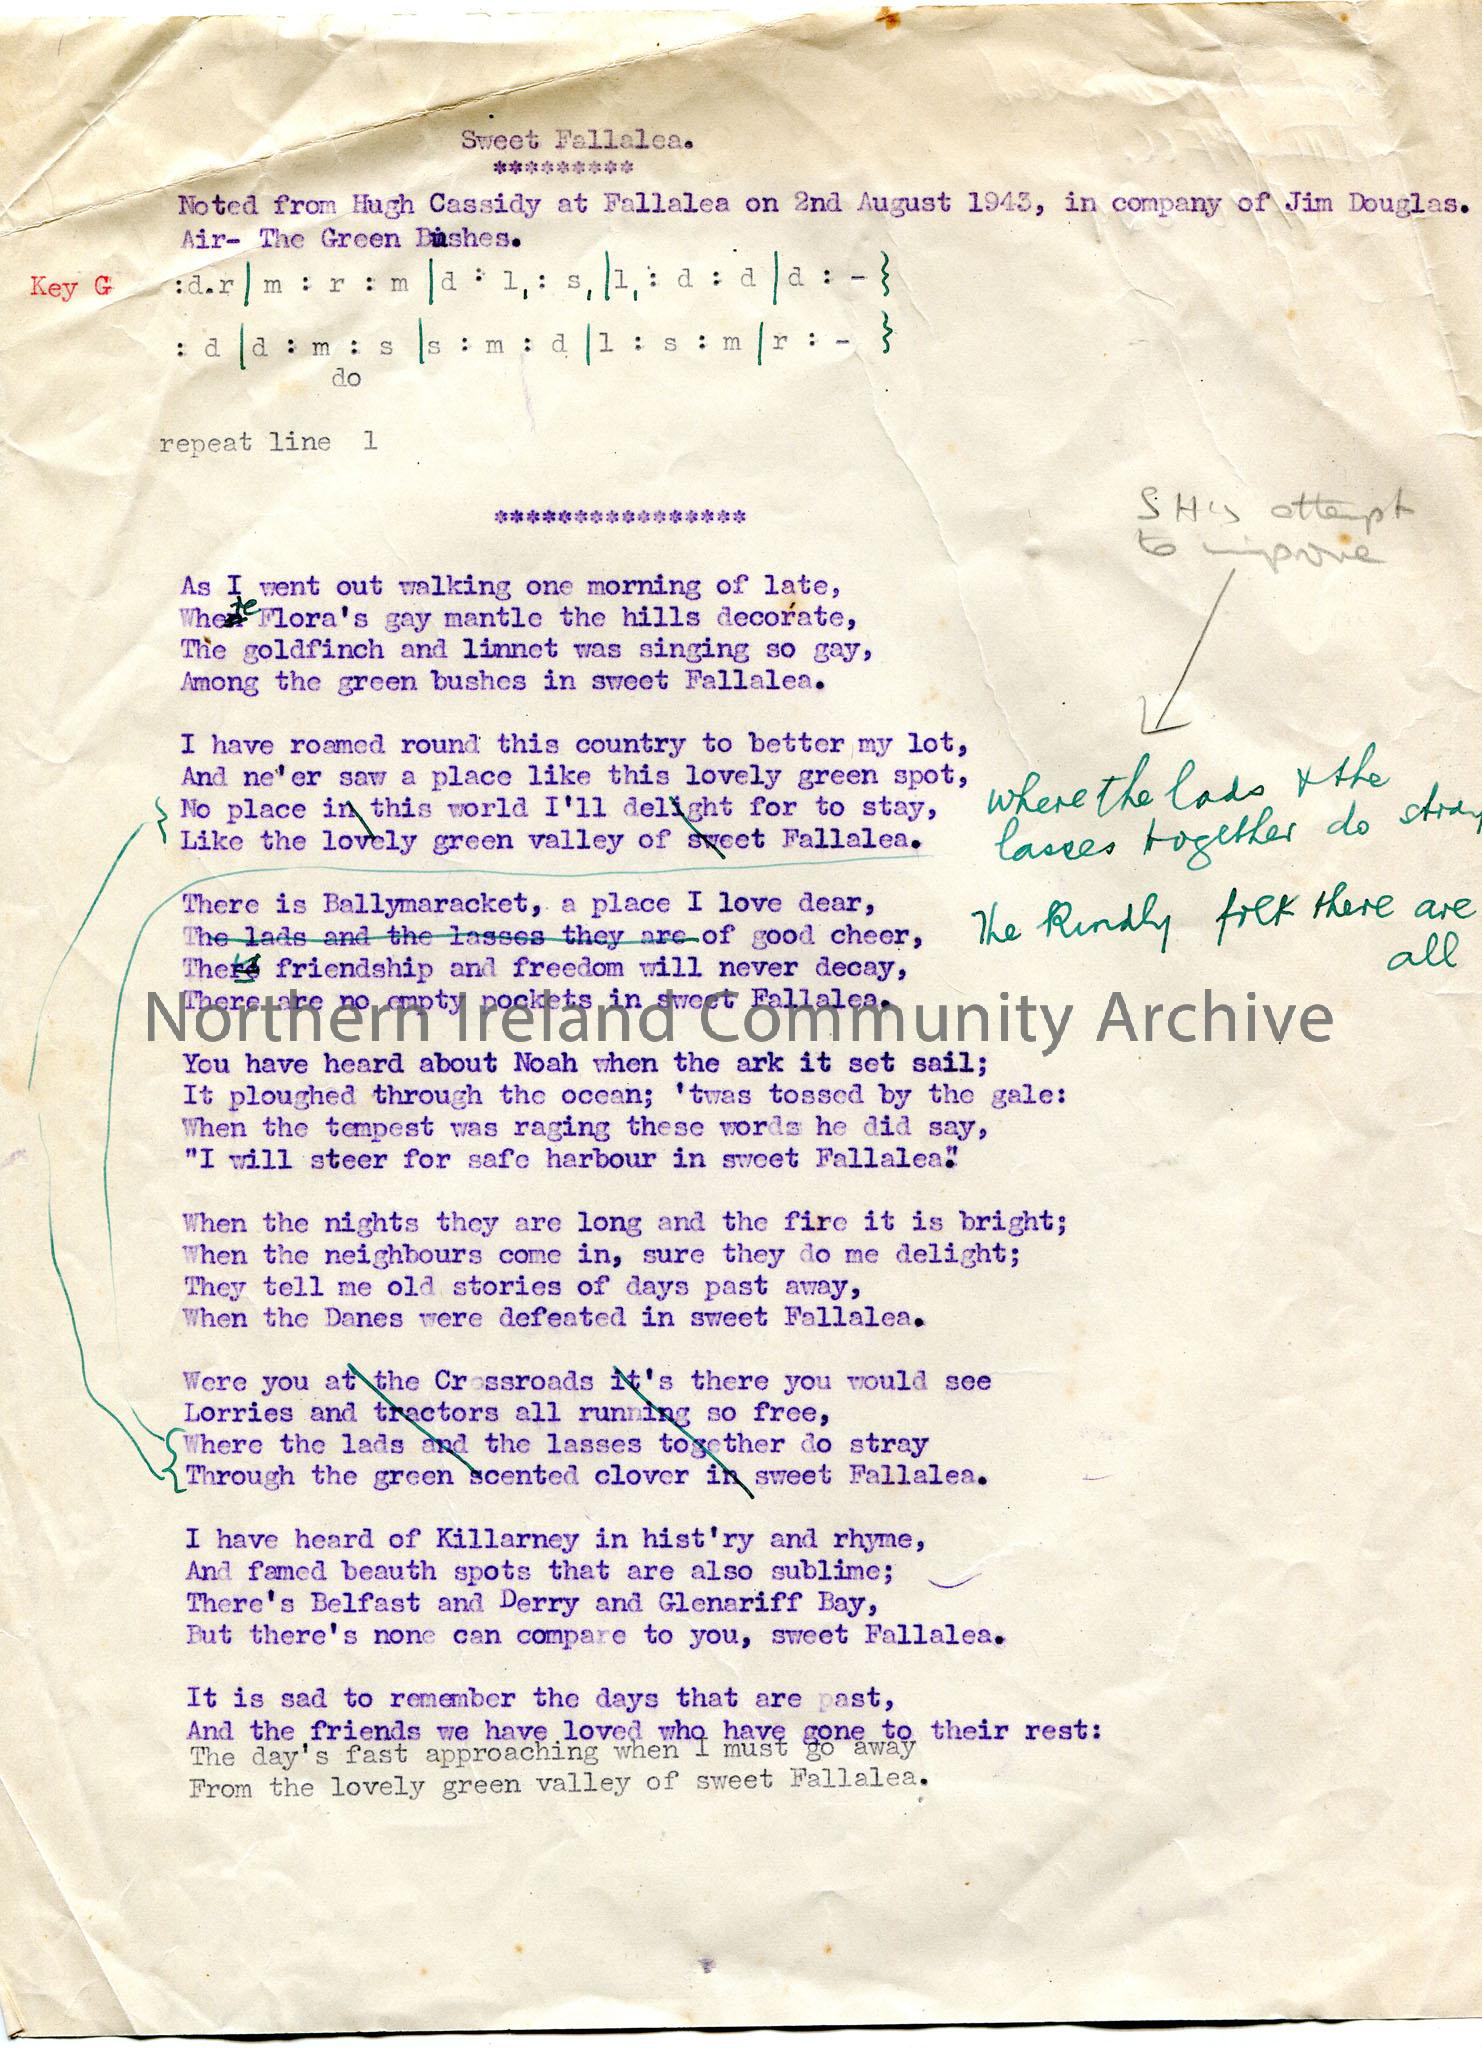 Sweet Fallalea.
*********
Noted from Hugh Cassidy at Fallalea on 2nd August 1943, in company of Jim Douglas.
Air- The Green Bushes.
Key G :d.r| m : r : m |d : l, : s, |l, : d : d |d : - }
: d |d : m : s |s : m : d |l : s : m |r : - }
do
repeat line 1
****************
SH's attempt
to improve
As I went out walking one morning of late,
Where Flora's gay mantle the hills decorate,
The goldfinch and linnet was singing so gay,
Among the green bushes in sweet Fallalea.
I have roamed round this country to better my lot,
And ne'er saw a place like this lovely green spot,
No place in this world I'll delight for to stay,
Like the lovely green valley of sweet Fallalea.
where the lads & the
lasses together do stray
There is Ballymaracket, a place I love dear,
The lads and the lasses they are of good cheer,
The kindly folk there are
all
Their friendship and freedom will never decay,
There are no empty pockets in sweet Fallalea.
Northern Ireland Community Archive
You have heard about Noah when the ark it set sail;
It ploughed through the ocean; 'twas tossed by the gale:
When the tempest was raging these words he did say,
"I will steer for safe harbour in sweet Fallalea."
When the nights they are long and the fire it is bright;
When the neighbours come in, sure they do me delight;
They tell me old stories of days past away,
When the Danes were defeated in sweet Fallalea.
Were you at the Crossroads it's there you would see
Lorries and tractors all running so free,
Where the lads and the lasses together do stray
Through the green scented clover in sweet Fallalea.
I have heard of Killarney in hist'ry and rhyme,
And famed beauth spots that are also sublime;
There's Belfast and Derry and Glenariff Bay,
But there's none can compare to you, sweet Fallalea.
It is sad to remember the days that are past,
And the friends we have loved who have gone to their rest:
The day's fast approaching when I must go away
From the lovely green valley of sweet Fallalea.